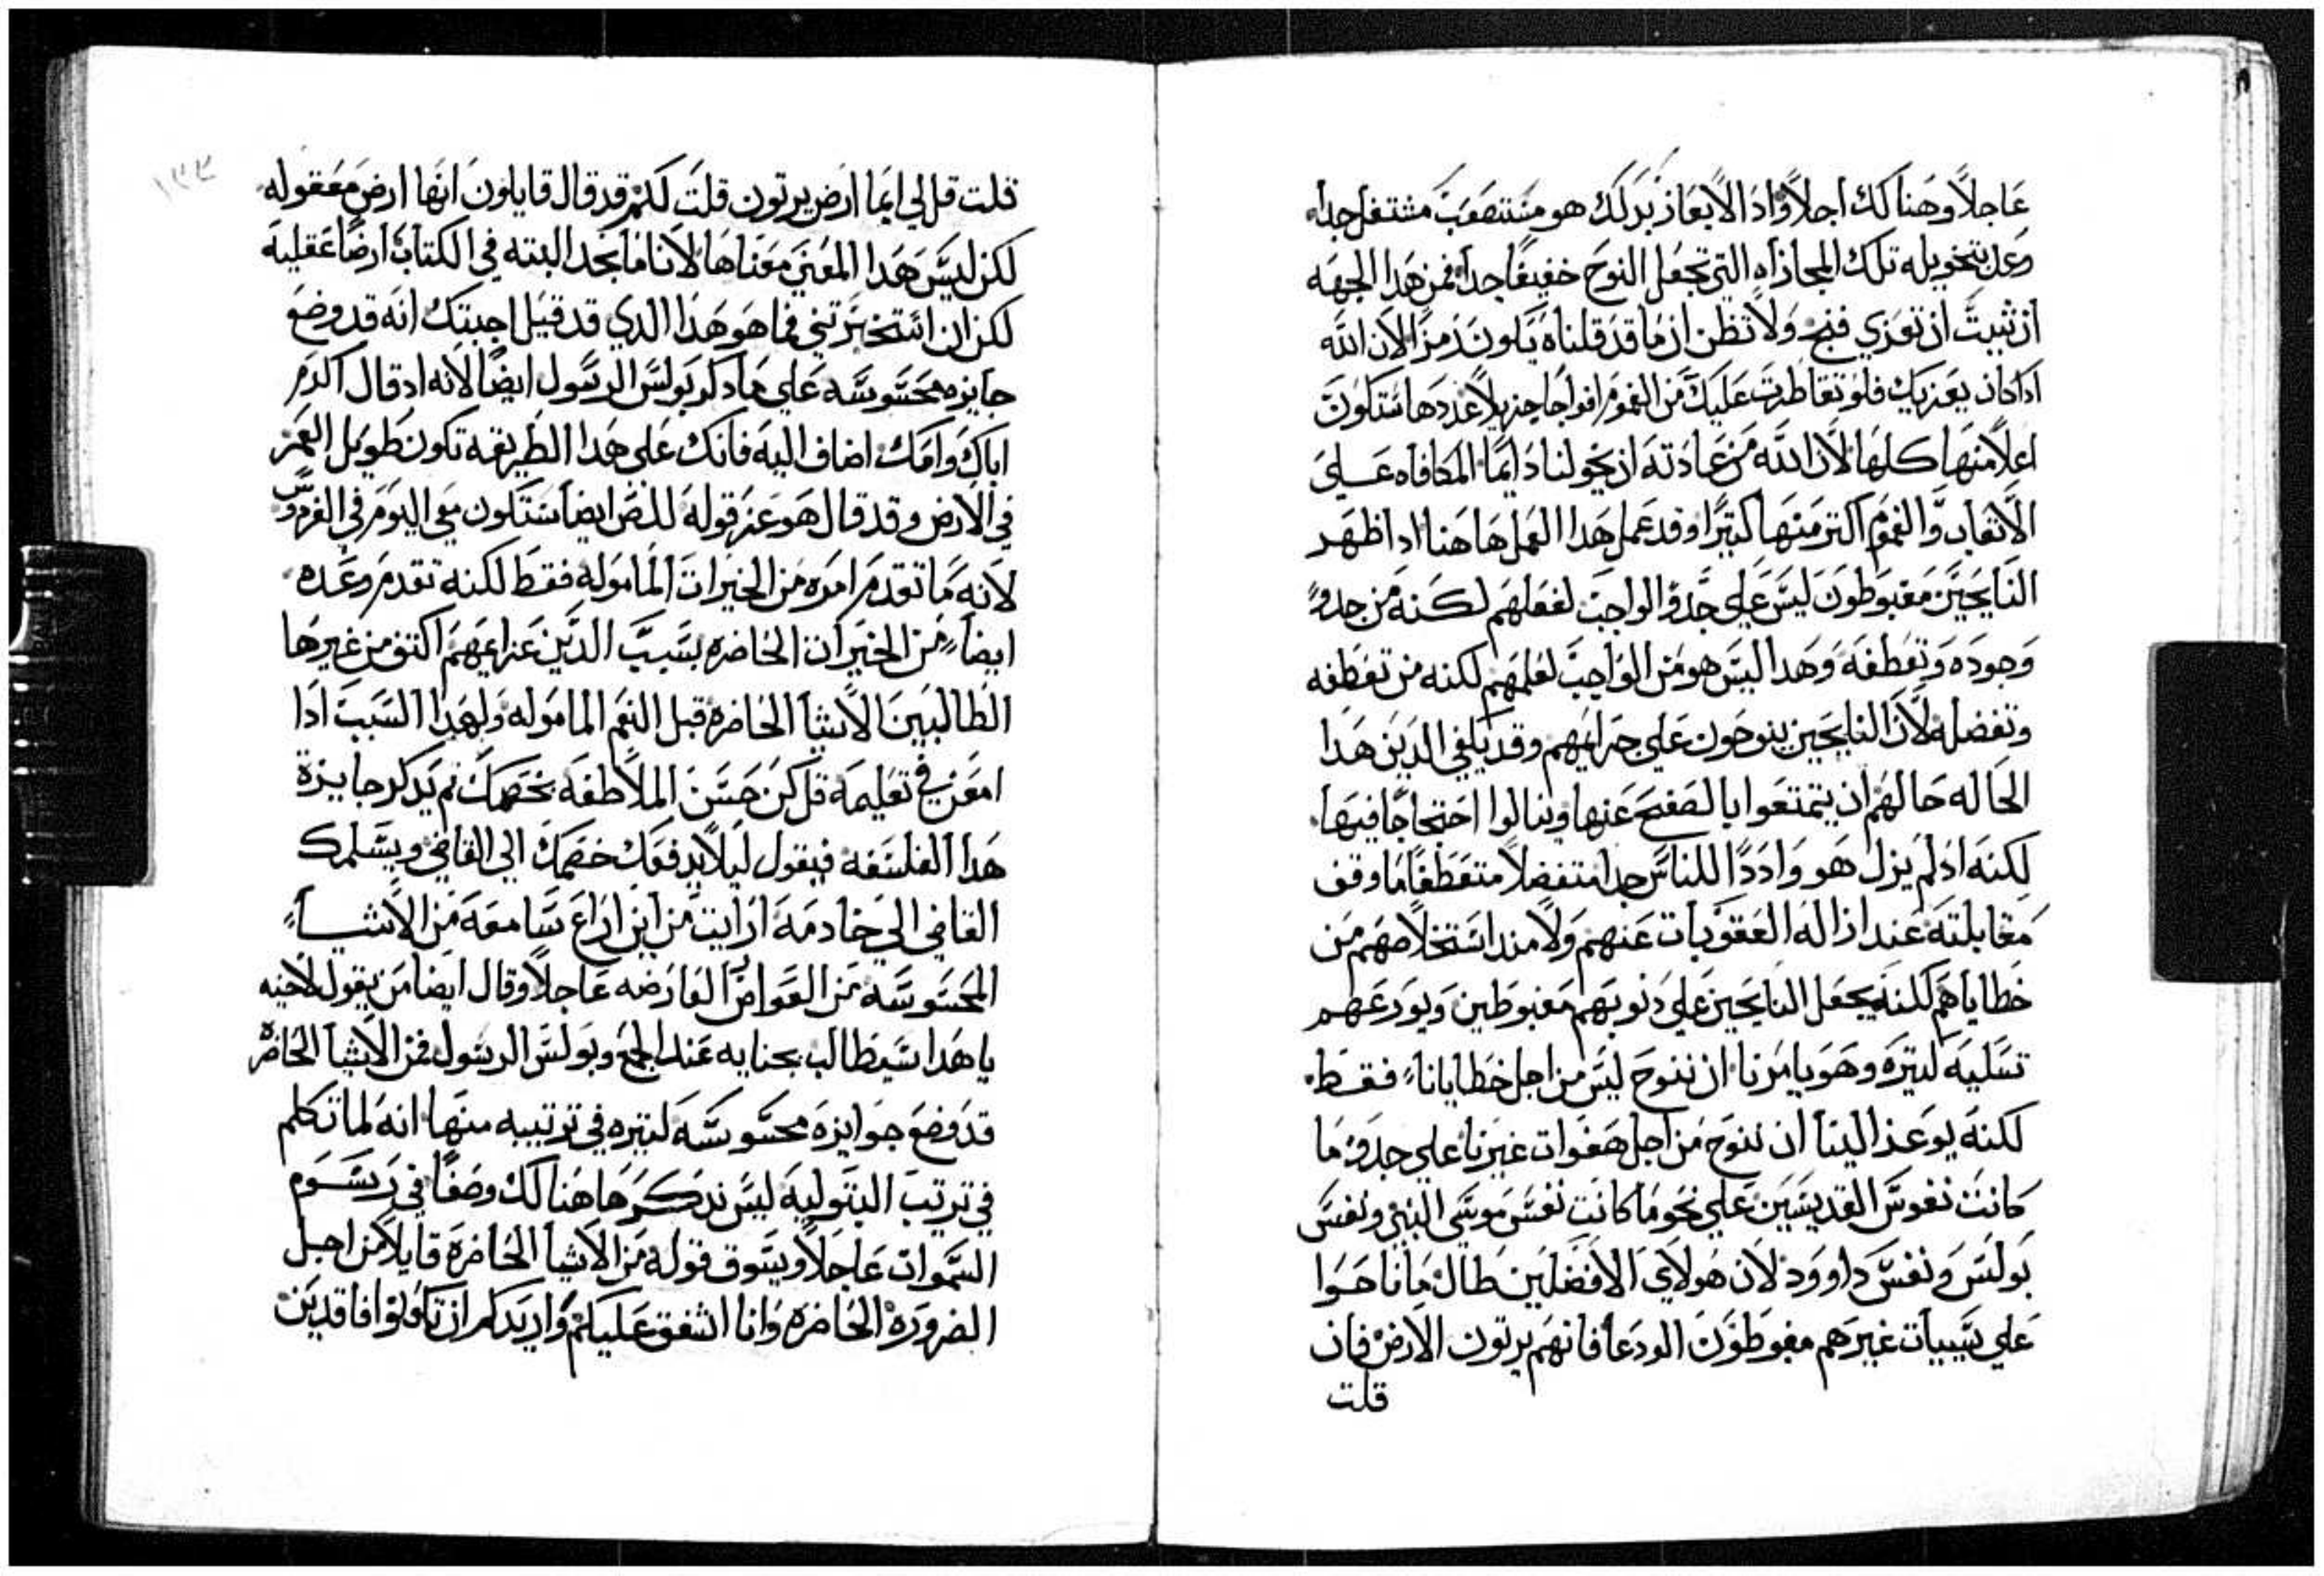 عاجلاً وهناك اجلاً واد الايعاز بدلك هو مستصعب مستثقل جداً
وعلى تخويله تلك المجازاه التي تجعل النوح خفيفاً جداً فمن هدا الجهه
ان شيت ان تعزي فنح ولا تظن ان ما قد قلناه يكون رمزاً لان الله
اداكان يعزيك فلو تقاطرت عليك من الغموم افواجا جزيلاً عددها ستكون
اعلا منها كلها لان الله من عادته ان يخولنا دايما المكافاه علي
الاتعاب والغموم اكتر منها كتيرًا وقد عمل هدا العمل هاهنا اد اظهر
النايحين مغبوطون ليس علي حدو الواجب لفعلهم لكنه من حدو
وجوده وتعطفه وهدا ليس هو من الواجب لعلمهم لكنه من تعطفه
وتفضله لان النايحين ينوحون علي جرايمهم وقد يكفي الدين هدا
الحاله حالهم ان يتمتعوا بالصفح عنها وينالوا احتجاجاً فيها
لكنه اد لم يزل هو وادداً للناس جدا متفضلاً متعطفاً ما وقف
مقابلته عند ازاله العقوبات عنهم ولا مند استخلاصهم من
خطاياهم لكنه يجعل النايحين علي دنوبهم مغبوطين ويودعهم
تسليه كتيره وهو يامرنا ان ننوح ليس من اجل خطايانا فقط
لكنه يوعز الينا ان ننوح من اجل هفوات غيرنا علي حدو ما
كانت نفوس القديسين علي نحو ما كانت نفس موسي النبي ونفس
بولس ونفس داوود لان هولاي الافضلين طال ما ناحوا
علي سييات غيرهم مغبوطون الودعا فانهم يرتون الارض فان
قلت
١٣٣
قلت قل لي ايما ارض يرتون قلت لكم قد قال قايلون انها ارض معقوله
لكن ليس هدا المعني معناها لاننا ما نجد البته في الكتاب ارضاً عقليه
لكن ان استخبرتني فما هو هدا الدي قد قيل اجبتك انه قد وضع
جايزه محسوسه علي ما دكر بولس الرسول ايضاً لانه اد قال اكرم
اباك وامك اضاف اليه فانك علي هدا الطريقه تكون طويل العمر
في الارض وقد قال هو عن قوله للص ايضا ستكون معي اليوم في الفردوس
لانه ما تقدم امره من الخيرات الماموله فقط لكنه تقدم وعده
ايضاً من الخيرات الحاضره بسبب الدين عزايمهم اكتف من غيرها
الطالبين الاشيا الحاضره قبل النعم الماموله ولهدا السبب ادا
امعن في تعليمه قل كن حسن الملاطفه بخصمك تم يدكر جايزة
هدا الفلسفه فيقول ليلا يدفعك خصمك الي القاضي ويسلمك
القاضي الي خادمه ارايت من اين اراع سامعه من الاشيا
المحسوسه من العوارض العارضه عاجلاً وقال ايضا من يقول لاخيه
يا هدا سيطالب بجنايه عند الجمع وبولس الرسول فمن الاشيا الحاضره
قد وضع جوايزه محسوسه كتيره في ترتيبه منها انه لما تكلم
في ترتب البتوليه ليس ندكرها هنالك وصفاً في رسوم
السموات عاجلاً ويسوق قوله من الاشيا الحاضرة قايلاً من اجل
الضروره الحاضره وانا اشفق عليكم واريدكم ان تكونوا فاقدين